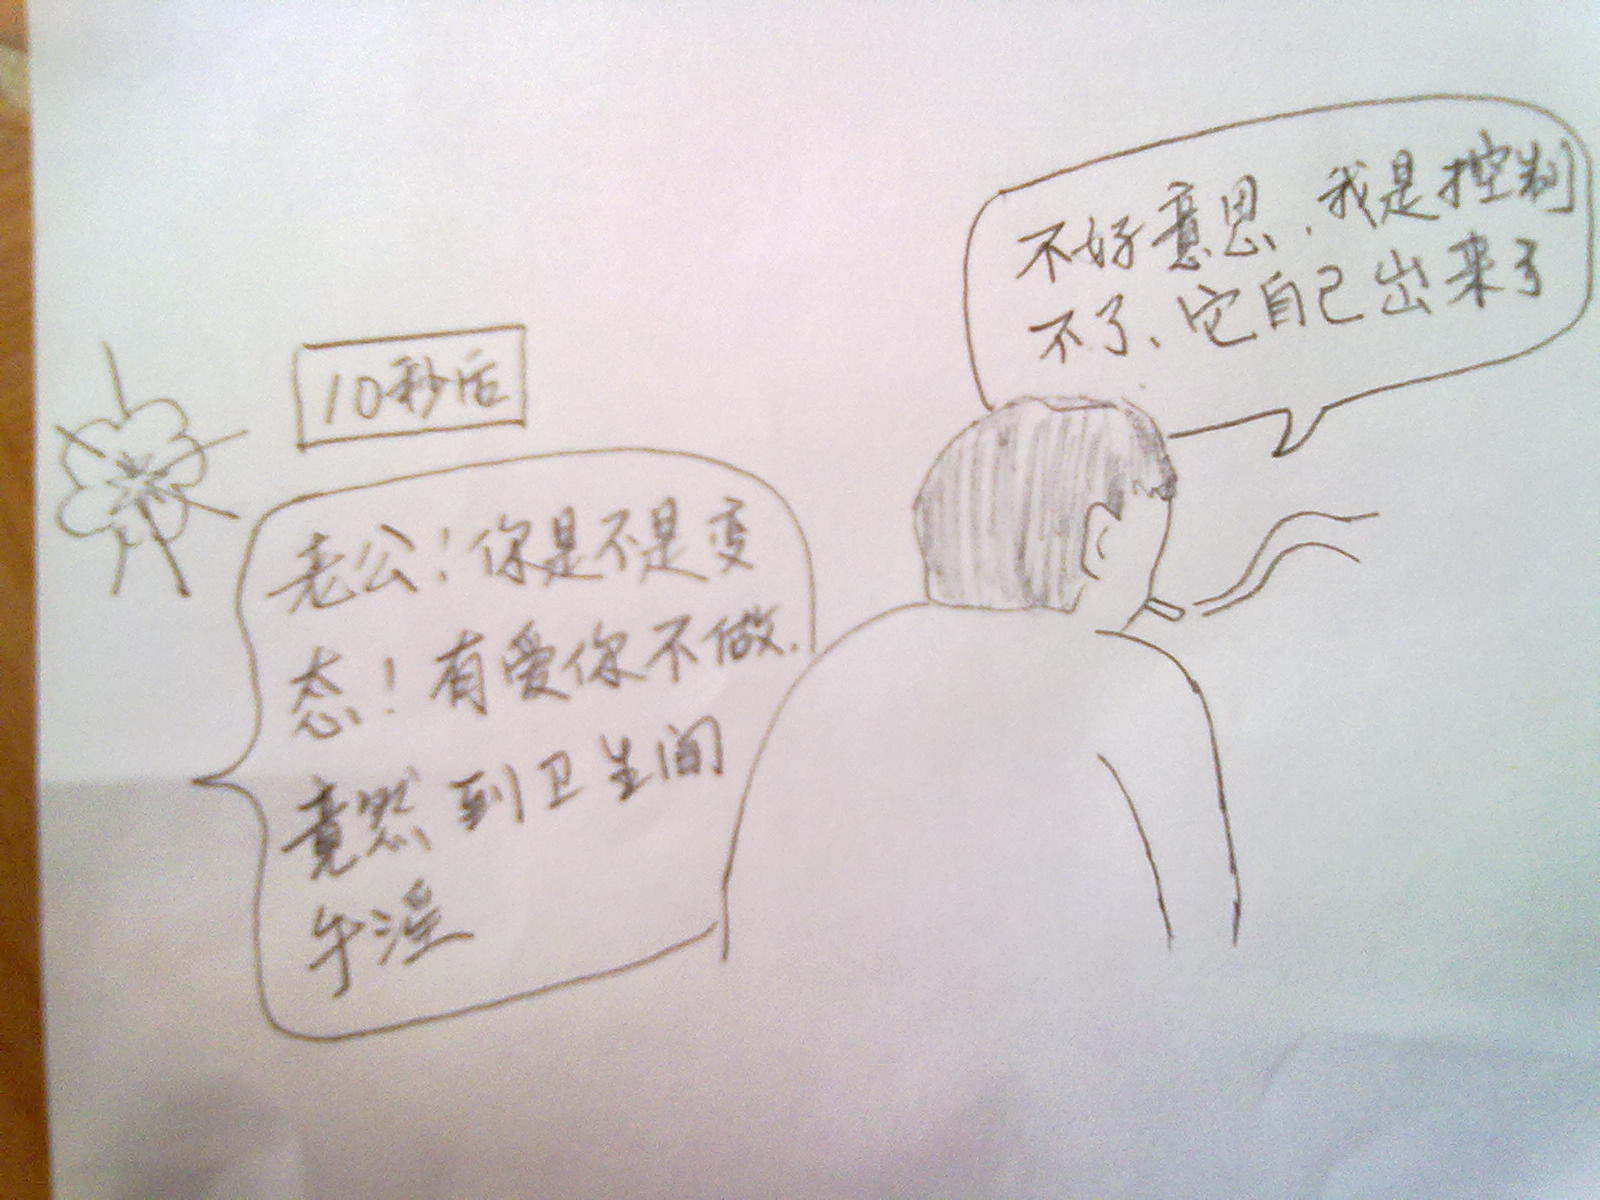 10秒后
老公！你是不是变
态！有爱你不做.
竟然到卫生间
手淫
不好意思，我是控制
不了、它自己出来了